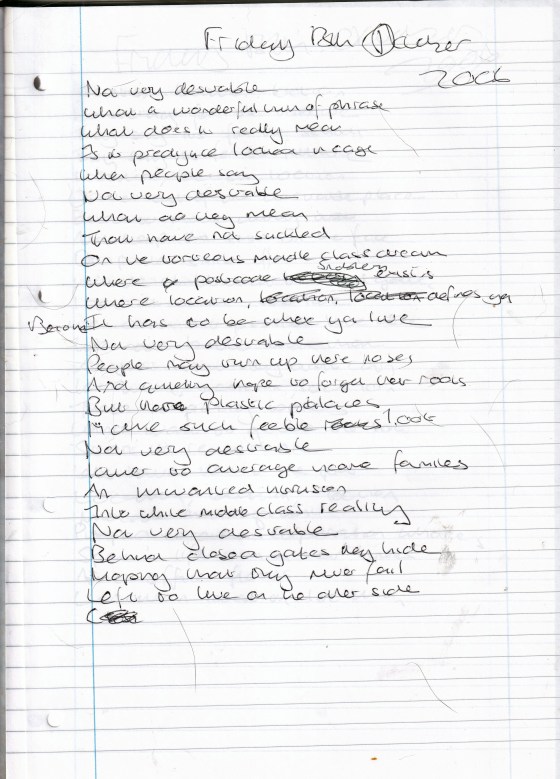 Friday 13th
2006
Not very desirable
What a wonderful turn of phrase
What does it really mean
Is it predijuce locked in cage
When people say
Not very desirable
What do they mean
They have not suckled
On the middle class cream
Where postcode snobbery exists
Where location, location, location defines ya
Because It has to be where ya live
Not very desirable
People may turn up there noses
And quietly hope to forget their roots
But there plastic palaces
Make such feeble looks
Not very desirable
lower to average income families
An unwanted intrusion
Into white middle class reality
Not very desirable
Behind closed gates they hide
Hoping that they never fail
Left to live on the other side